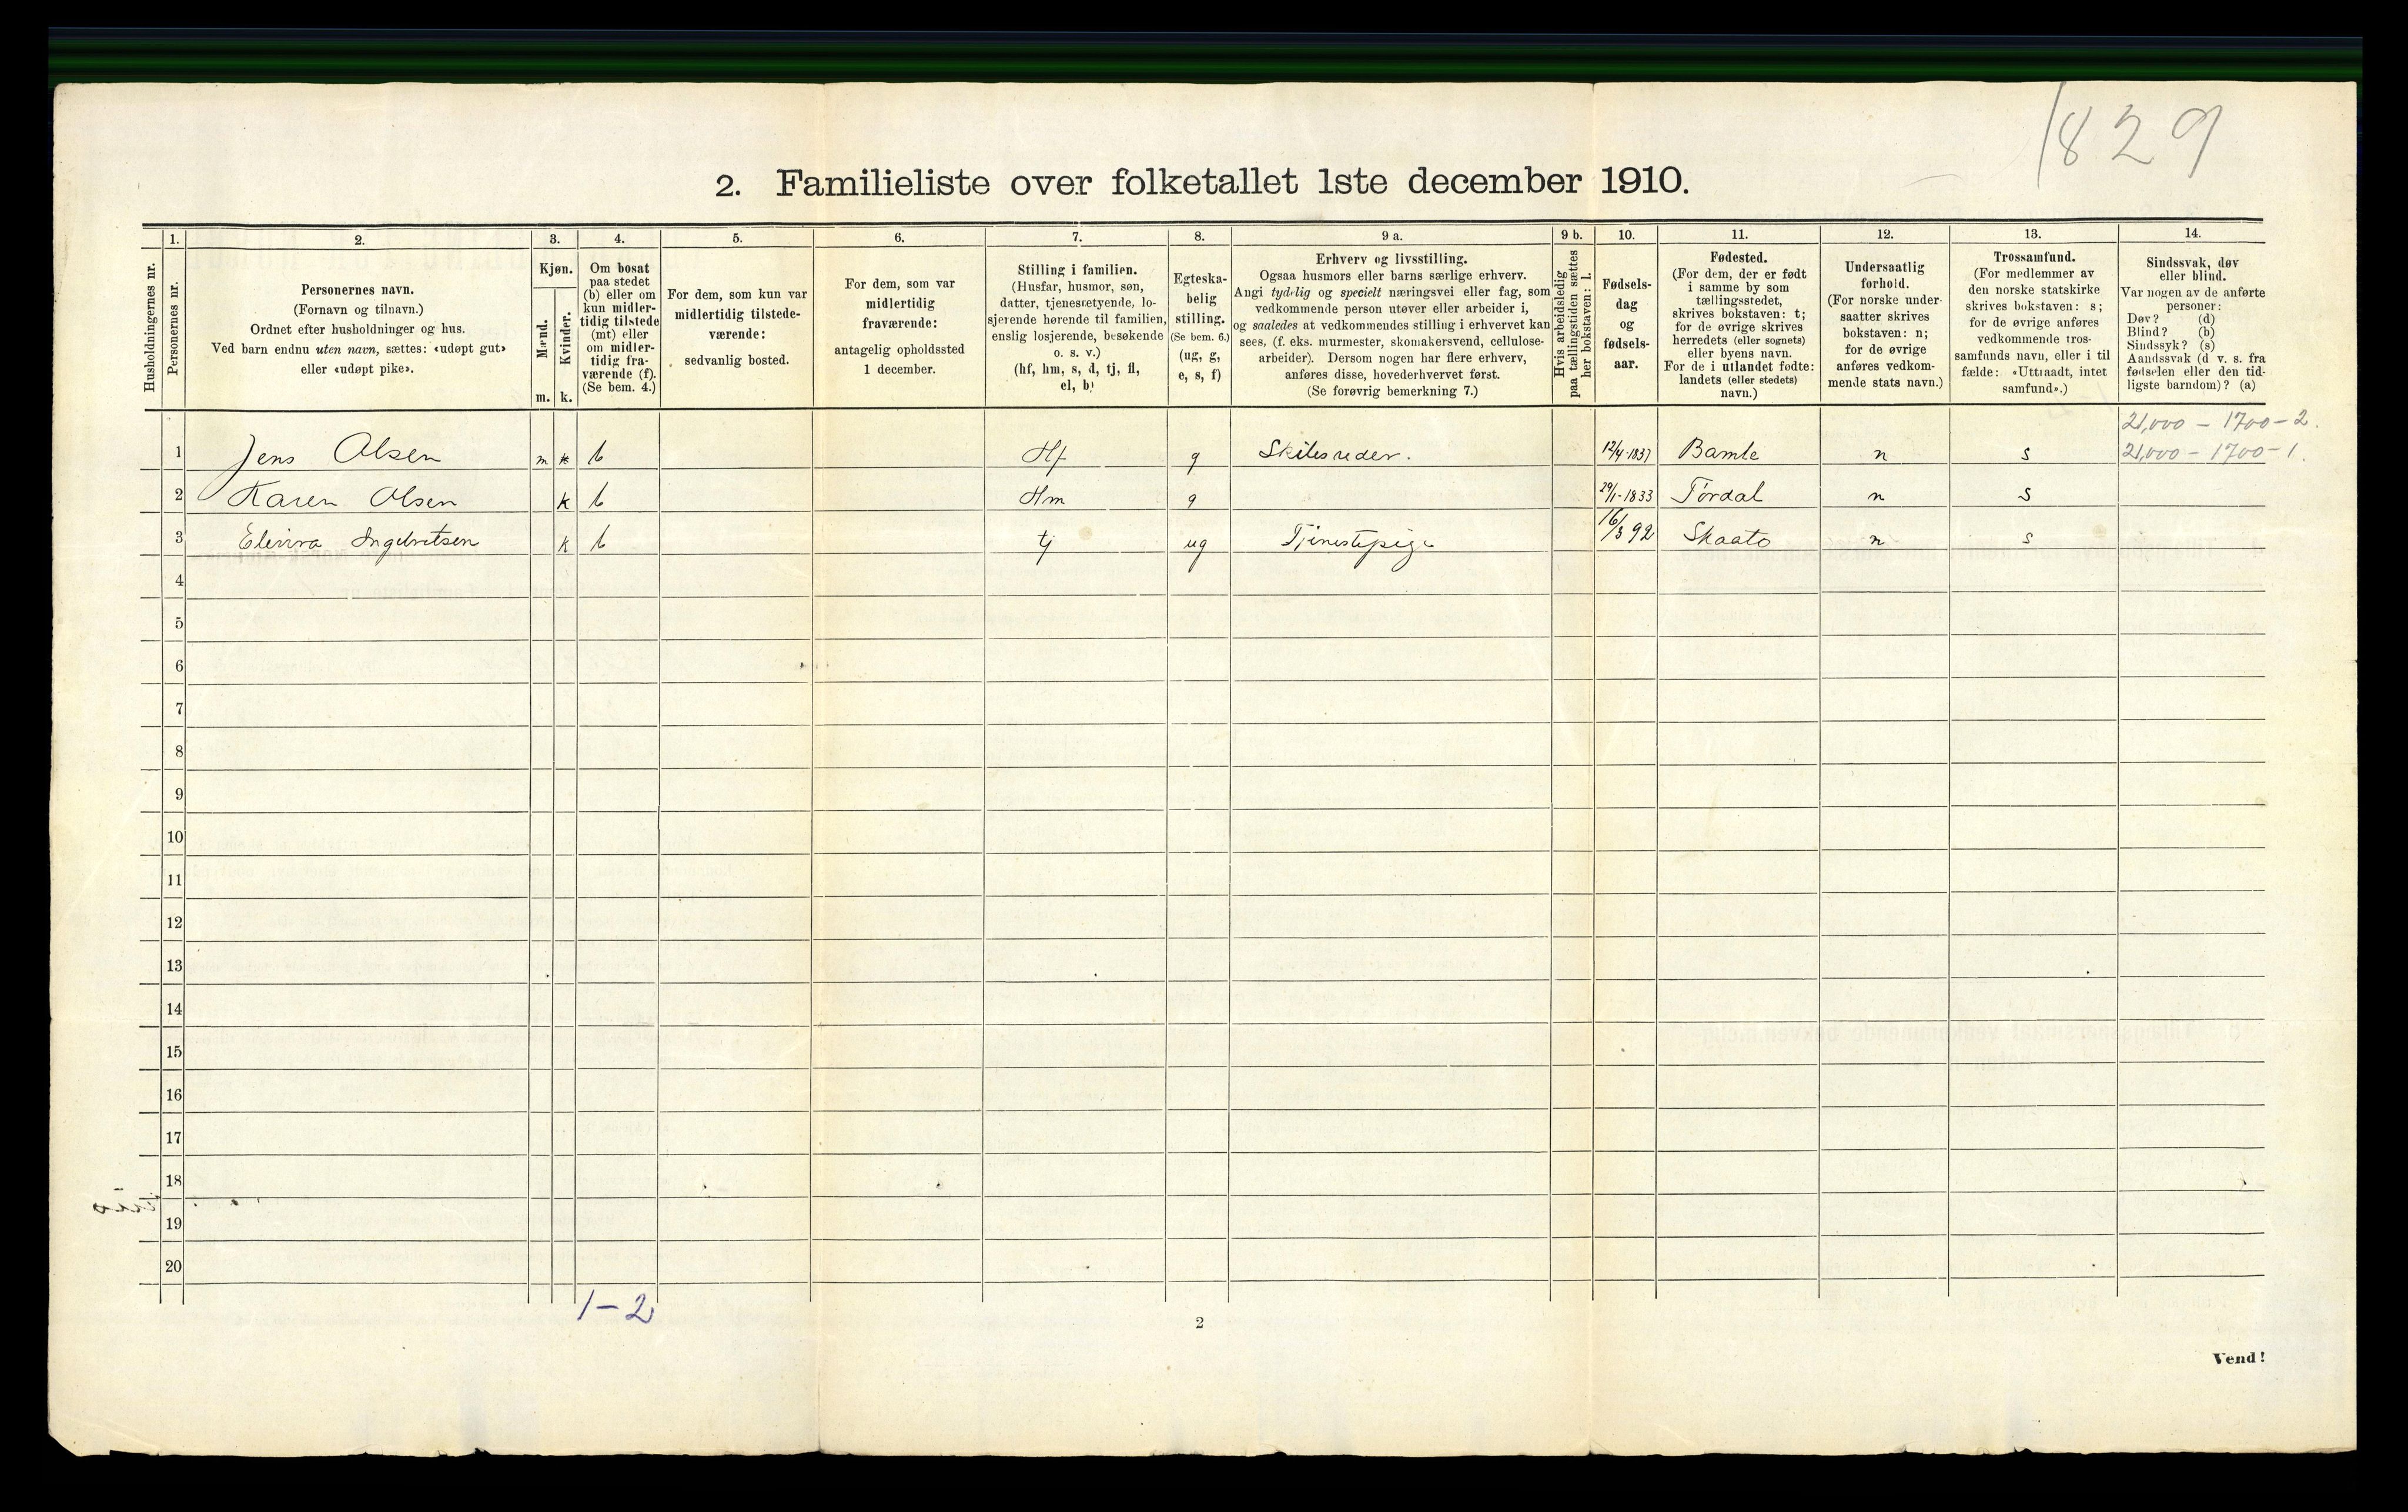 1829
2. Familieliste over folketallet 1ste december 1910.
1. 2. 3. 4. 5. 6. 7. 8. 9 a. 9 b. 10. 11. 12. 13. 14.
Husholdningernes nr.
Personernes nr.
Personernes navn.
(Fornavn og tilnavn.)
Ordnet efter husholdninger og hus.
Ved barn endnu uten navn, sættes: «udøpt gut»
eller «udøpt pike».
Kjøn.
Mænd.
Kvinder.
m. k.
Om bosat
paa stedet
(b) eller om
kun midler-
tidig tilstede
(mt) eller
om midler-
tidig fra-
værende (f).
(Se bem. 4.)
For dem, som kun var
midlertidig tilstede-
værende:
sedvanlig bosted.
For dem, som var
midlertidig
fraværende:
antagelig opholdssted
1 december.
Stilling i familien.
(Husfar, husmor, søn,
datter, tjenestetyende, lo-
sjerende hørende til familien,
enslig losjerende, besøkende
o. s. v.)
(hf, hm, s, d, tj, fl,
el, b)
Egteska-
belig
stilling.
(Se bem. 6.)
(ug, g,
e, s, f)
Erhverv og livsstilling.
Ogsaa husmors eller barns særlige erhverv.
Angi tydelig og specielt næringsvei eller fag, som
vedkommende person utøver eller arbeider i,
og saaledes at vedkommendes stilling i erhvervet kan
sees, (f. eks. murmester, skomakersvend, cellulose-
arbeider). Dersom nogen har flere erhverv,
anføres disse, hovederhvervet først.
(Se forøvrig bemerkning 7.)
Hvis arbeidsledig
paa tællingstiden sættes
her bokstaven: l.
Fødsels-
dag
og
fødsels-
aar.
Fødested.
(For dem, der er født
i samme by som
tællingsstedet,
skrives bokstaven: t;
for de øvrige skrives
herredets (eller sognets)
eller byens navn.
For de i utlandet fødte:
landets (eller stedets)
navn.)
Undersaatlig
forhold.
(For norske under-
saatter skrives
bokstaven: n;
for de øvrige
anføres vedkom-
mende stats navn.)
Trossamfund.
(For medlemmer av
den norske statskirke
skrives bokstaven: s;
for de øvrige anføres
vedkommende tros-
samfunds navn, eller i til
fælde: «Uttraadt, intet
samfund».)
Sindssvak, døv
eller blind.
Var nogen av de anførte
personer:
Døv? (d)
Blind? (b)
Sindssyk? (s)
Aandssvak (d v. s. fra
fødselen eller den tid-
ligste barndom)? (a)
21,000 - 1700 - 2.
1 Jens Olsen m k b Hf g Skibsreder. 12/4-1837 Bamle n s 21,000 - 1700 - 1.
2 Karen Olsen k b Hm g 29/1-1833 Tørdal n s
3 Elevira Ingebretsen k b tj ug Tjenestepige 16/3 92 Skaatø n s
4
5
6
7
8
9
10
11
12
13
14
15
16
17
18
19
20
1-2
2
Vend!